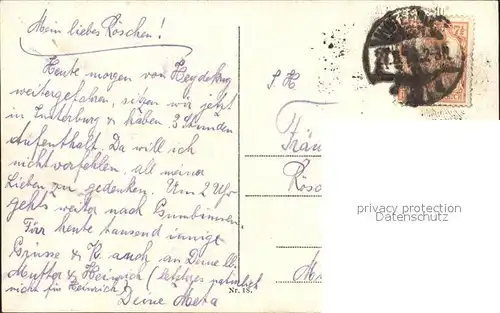 Mein liebes Röschen!
Heute morgen von Heydekrug
weitergefahren sitzen wir jetzt
in Insterburg & haben 3 Stunden
Aufenthalt. Da will ich
nicht verfehlen, all meiner
Lieben zu gedenken. Um 2 Uhr
gehts weiter nach Gumbinnen.
Für heute tausend innige
Grüsse & K. auch an Deine lb.
Mutter & Heinrich (letzteres natürlich
nicht für Heinrich)
Deine
S. H.
Fräu
Rösc
Nr. 18.
7½
privacy protection
Datenschutz